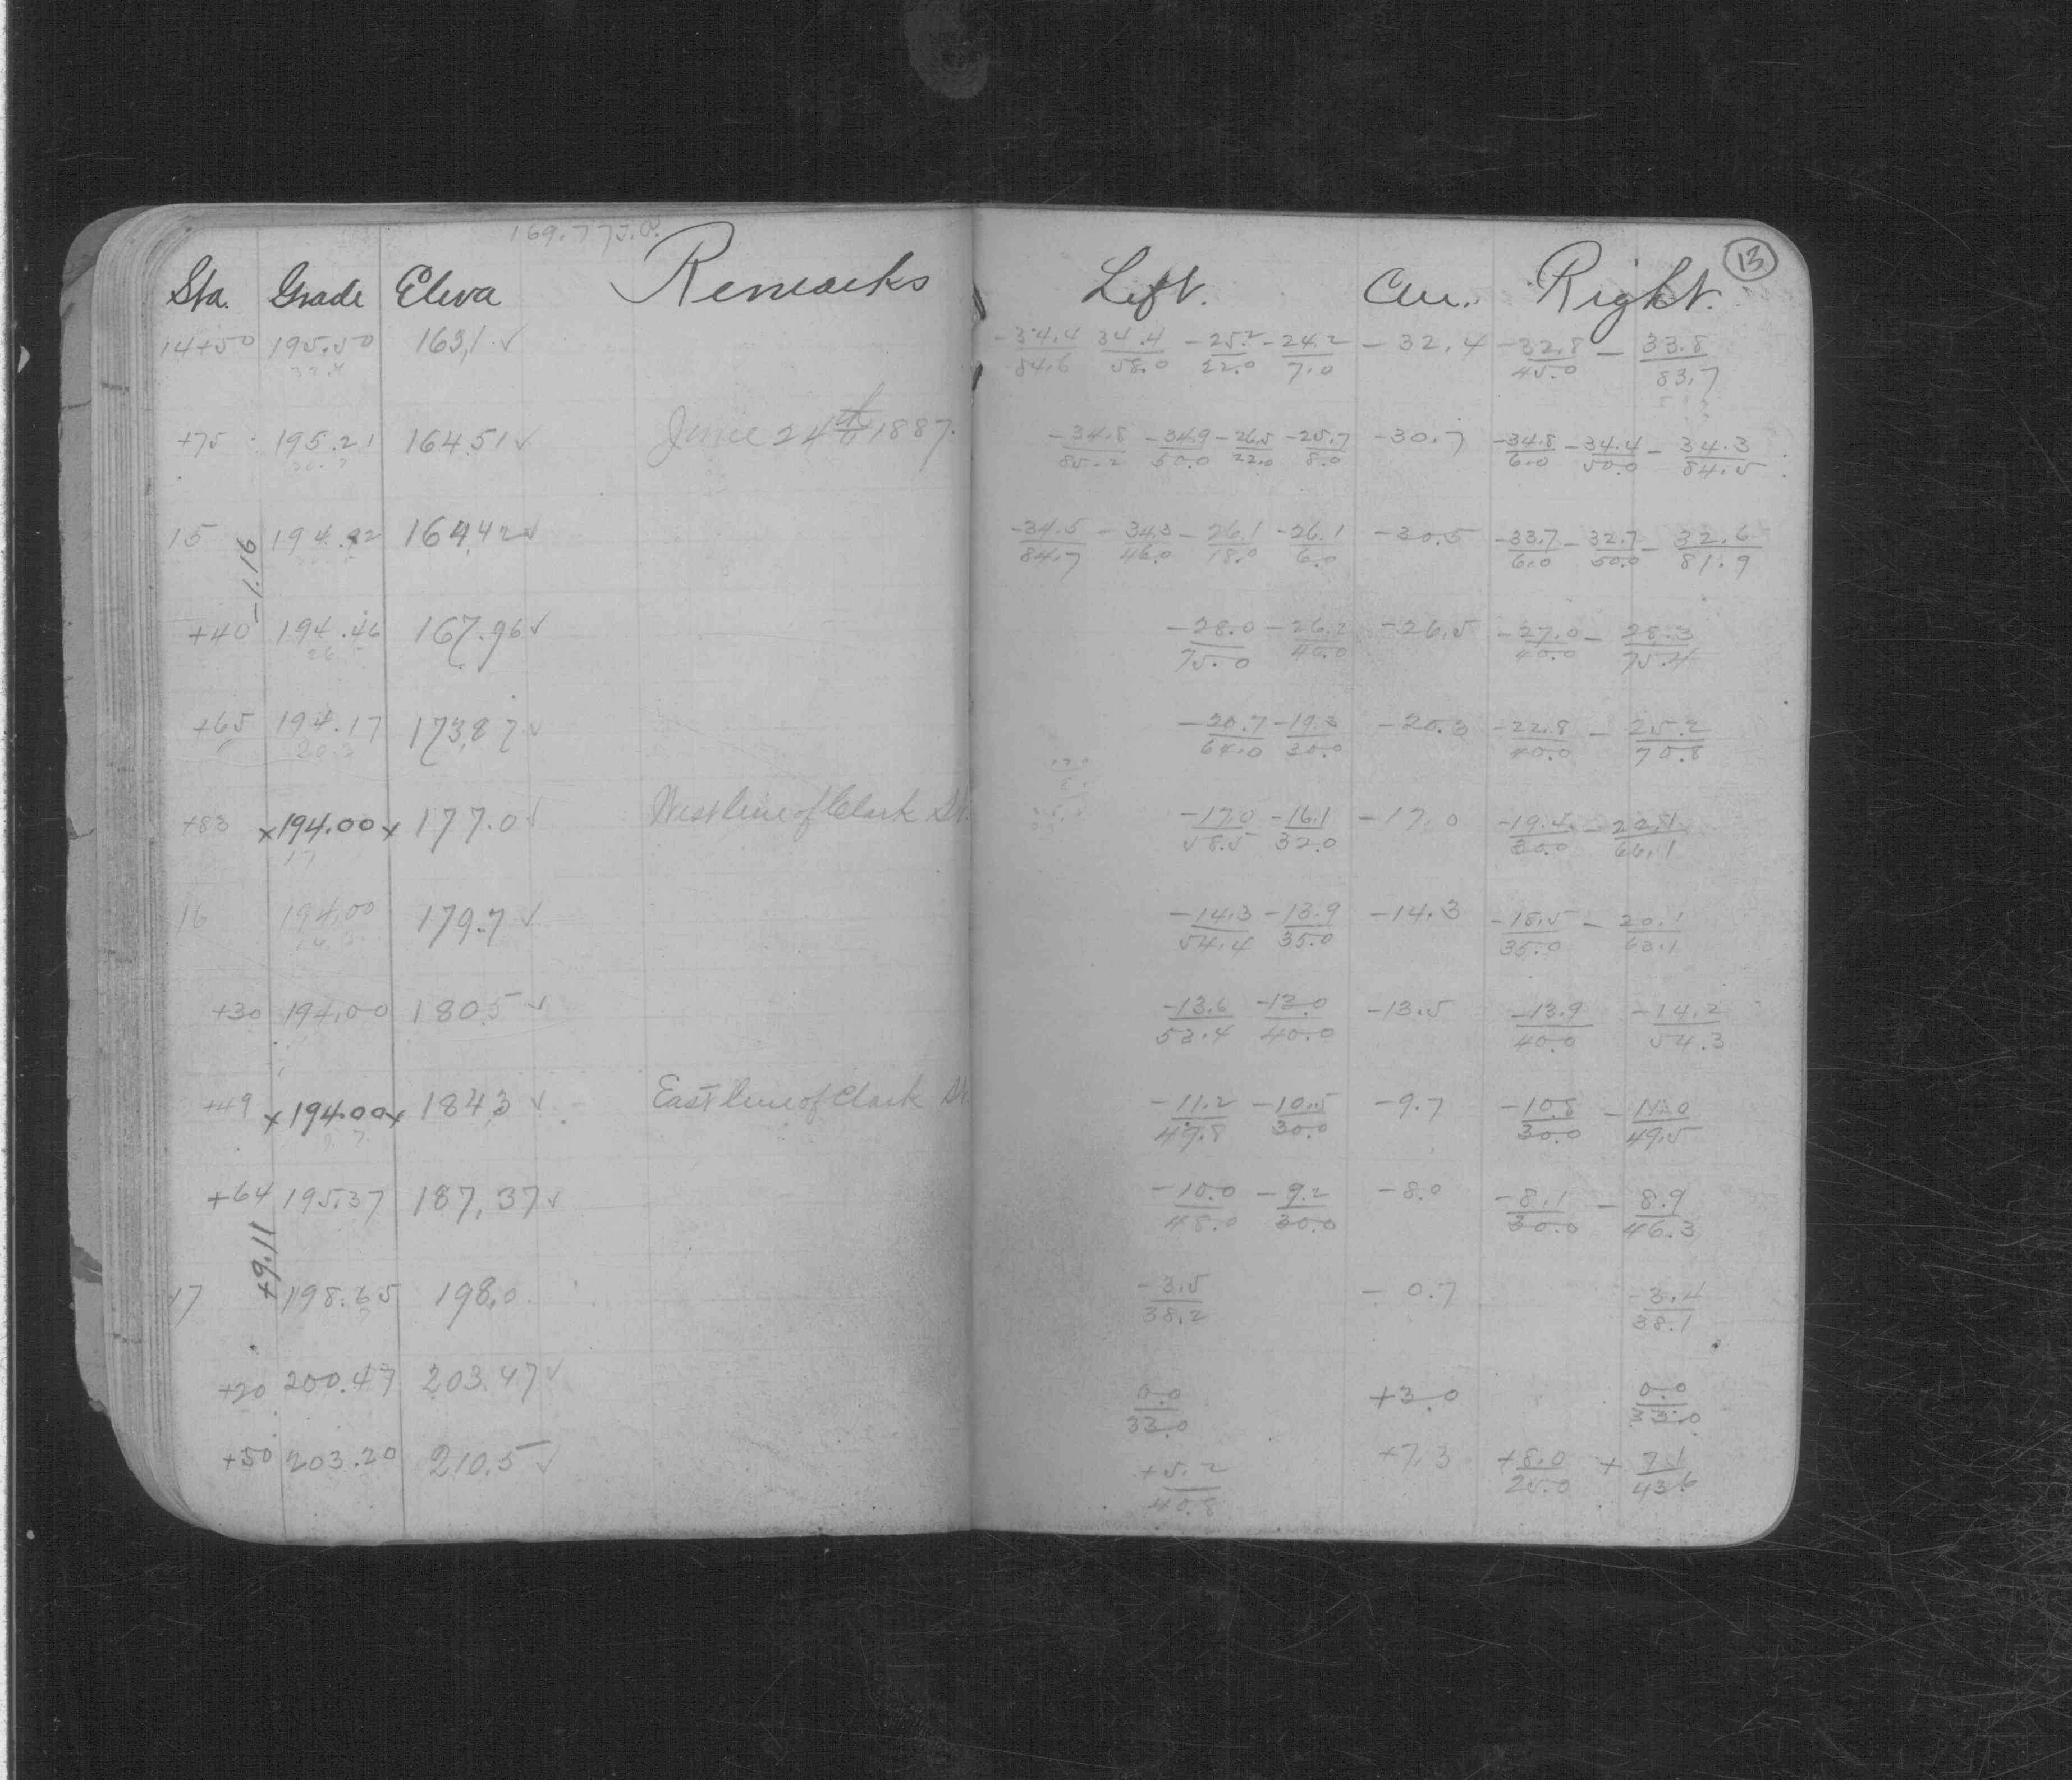 169.77
13
Sta. Grade Eleva Remarks Left. Cen. Right.
14+50 195.50 163.1 ✓ -34.4/84.6 34.4/58.0 -25.2/22.0 -24.2/7.0 -32.4 -32.8/45.0 -33.8/83.7
32.4
+75 195.21 164.51 ✓ June 24th 1887. -34.8/85.2 -34.9/50.0 -26.5/22.0 -25.7/8.0 -30.7 -34.8/6.0 -34.4/50.0 -34.3/84.5
30.7
15 194.92 164.42 ✓ -34.5/84.7 -34.3/46.0 -26.1/18.0 -26.1/6.0 -30.5 -33.7/6.0 -32.7/50.0 -32.6/81.9
-1.16
+40 194.46 167.96 ✓ -28.0/75.0 -26.2/40.0 -26.5 -27.0/40.0 -28.3/75.4
26
+65 194.17 173.87 ✓ -20.7/64.0 -19.3/30.0 -20.3 -22.8/40.0 -25.2/70.8
20.3
+83 x194.00x 177.0 ✓ West line of Clark St. -17.0/58.5 -16.1/32.0 -17.0 -19.5/30.0 -22.1/66.1
17
16 194.00 179.7 ✓ -14.3/54.4 -13.9/35.0 -14.3 -18.5/35.0 -20.1/63.1
14.3
+30 194.00 180.5 ✓ -13.6/53.4 -13.0/40.0 -13.5 -13.9/40.0 -14.2/54.3
+49 x194.00x 184.3 ✓ East line of Clark St. -11.2/49.8 -10.5/30.0 -9.7 -10.8/30.0 -11.0/49.5
9.7
+64 195.37 187.37 ✓ -10.0/48.0 -9.2/30.0 -8.0 -8.1/30.0 -8.9/46.3
+9.11
17 198.65 198.0 -3.5/38.2 -0.7 -3.4/38.1
+20 200.47 203.47 ✓ 0.0/33.0 +3.0 0.0/33.0
+50 203.20 210.5 ✓ +5.2/40.8 +7.3 +8.0/25.0 +7.1/43.6